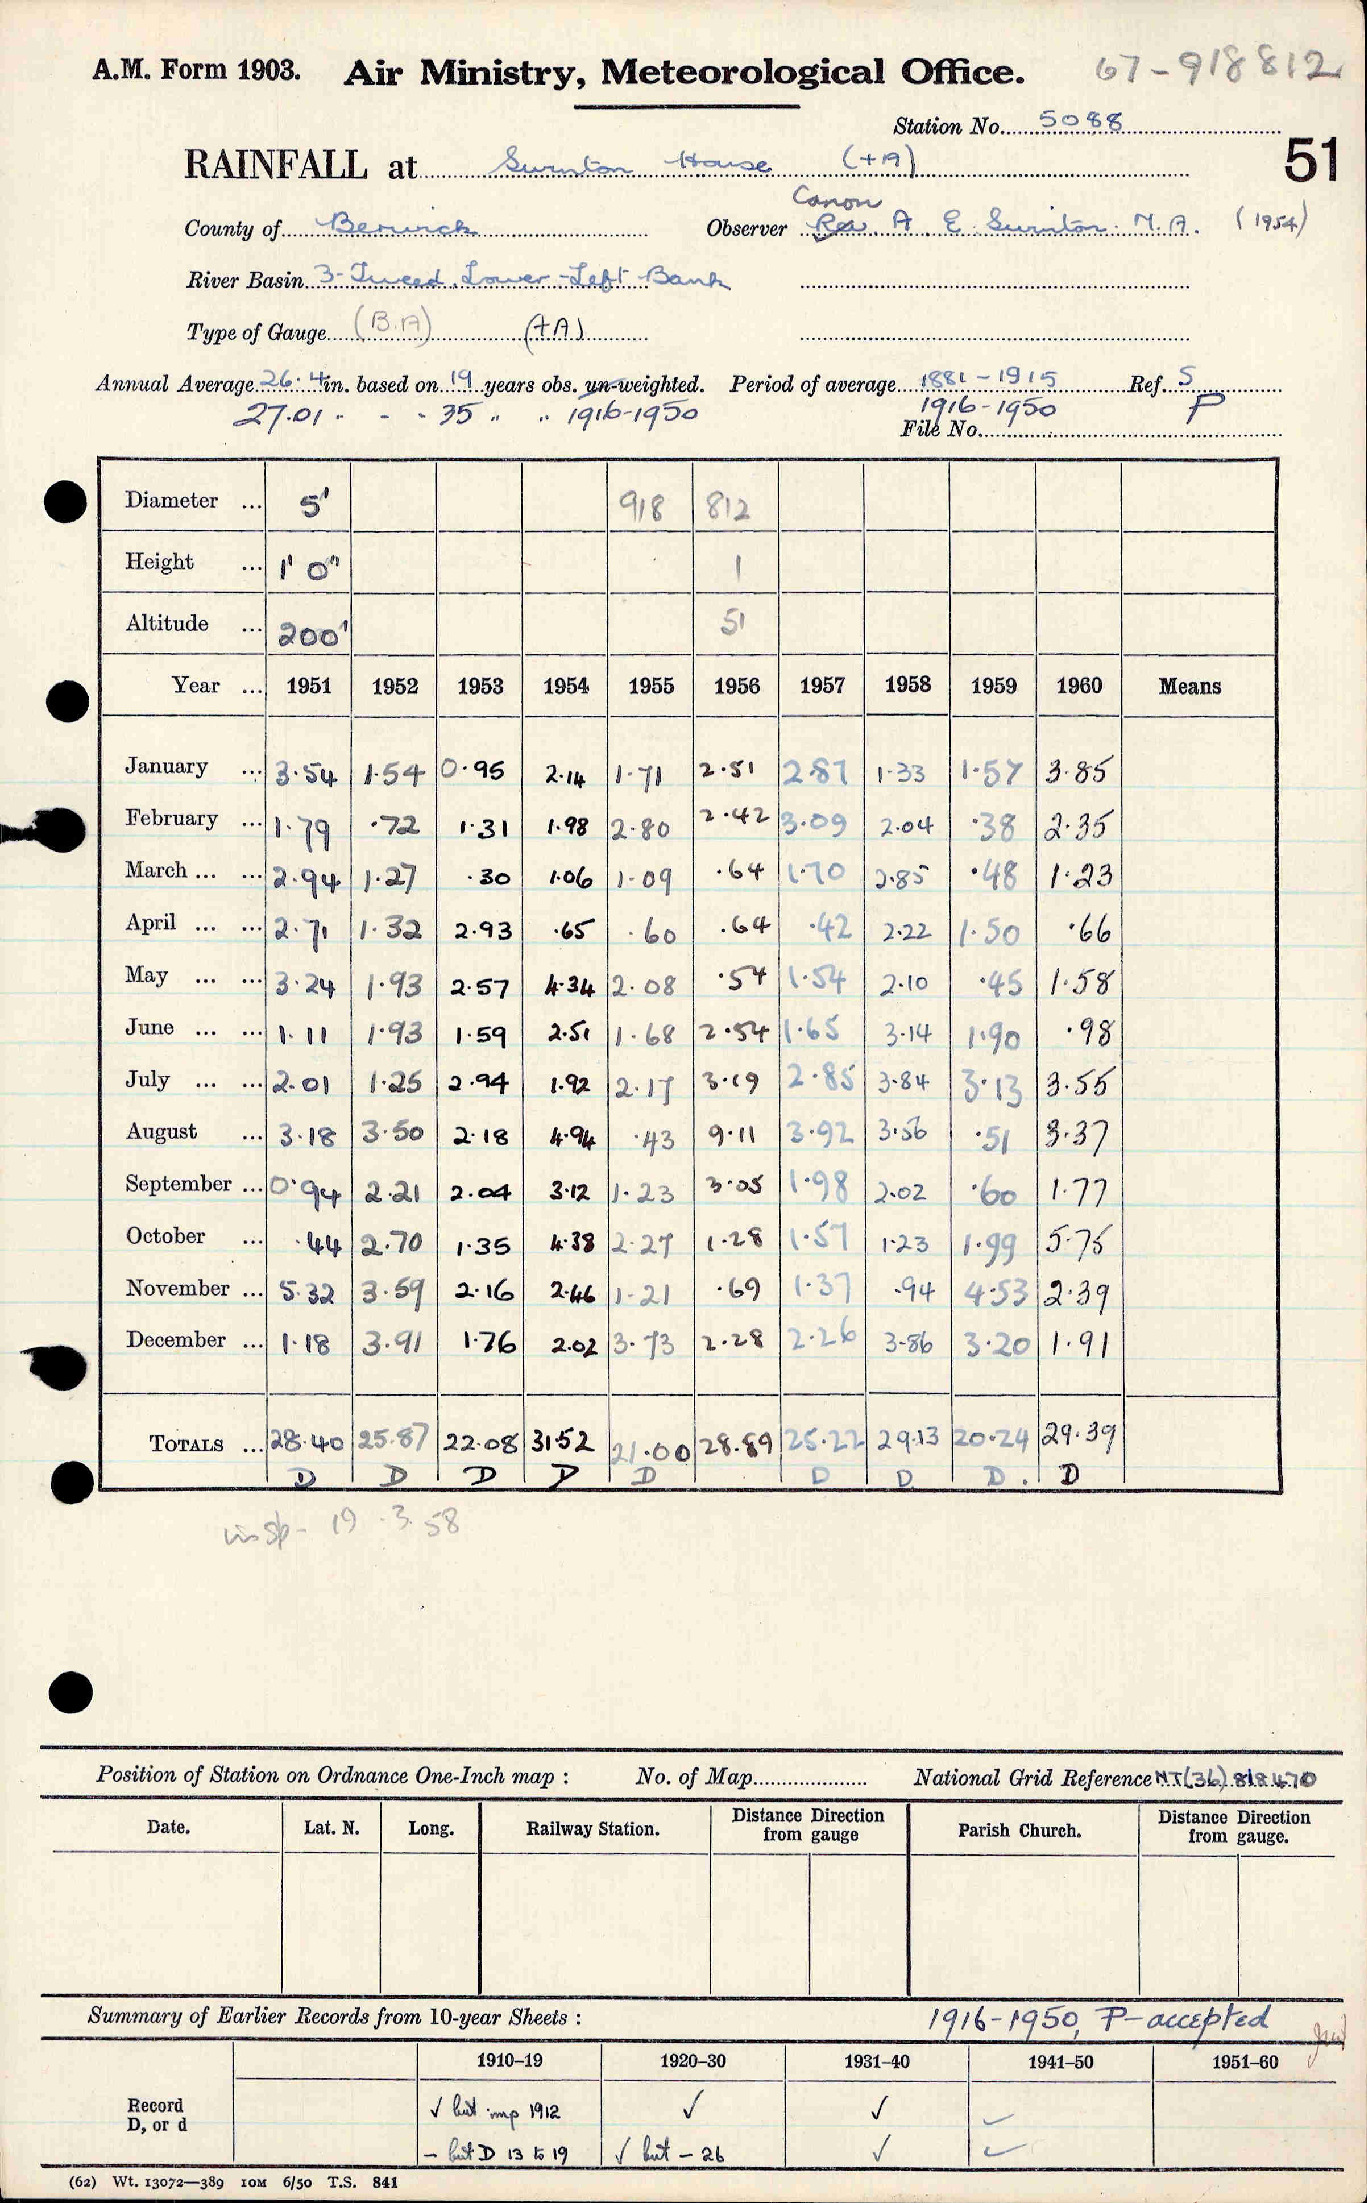 A.M. Form 1903. Air Ministry, Meteorological Office. 67-918812
Station No. 5088
RAINFALL at Swinton House (+A) 51
Canon
County of Berwick Observer Rev. A. E. Swinton. M.A. (1954)
River Basin 3-Tweed, Lower-Left Bank
Type of Gauge (B.A) (+A)
Annual Average 26.4 in. based on 19 years obs. un-weighted. Period of average 1881-1915 Ref. S
27.01 " - " 35 " " 1916-1950 1916-1950 P
File No.
Diameter ... 5' 918 812
Height ... 1' 0" 1
Altitude ... 200' 51
Year ... 1951 1952 1953 1954 1955 1956 1957 1958 1959 1960 Means
January ... 3.54 1.54 0.95 2.14 1.71 2.51 2.87 1.33 1.57 3.85
February ... 1.79 .72 1.31 1.98 2.80 2.42 3.09 2.04 .38 2.35
March ... ... 2.94 1.27 .30 1.06 1.09 .64 1.70 2.85 .48 1.23
April ... ... 2.71 1.32 2.93 .65 .60 .64 .42 2.22 1.50 .66
May ... ... 3.24 1.93 2.57 4.34 2.08 .54 1.54 2.10 .45 1.58
June ... ... 1.11 1.93 1.59 2.51 1.68 2.54 1.65 3.14 1.90 .98
July ... ... 2.01 1.25 2.94 1.92 2.17 3.19 2.85 3.84 3.13 3.55
August ... 3.18 3.50 2.18 4.94 .43 9.11 3.92 3.56 .51 3.37
September ... 0.94 2.21 2.04 3.12 1.23 3.05 1.98 2.02 .60 1.77
October ... .44 2.70 1.35 4.38 2.27 1.28 1.57 1.23 1.99 5.75
November ... 5.32 3.59 2.16 2.46 1.21 .69 1.37 .94 4.53 2.39
December ... 1.18 3.91 1.76 2.02 3.73 2.28 2.26 3.86 3.20 1.91
TOTALS ... 28.40 25.87 22.08 31.52 21.00 28.89 25.22 29.13 20.24 29.39
D D D D D D D D. D
insp- 19.3.58
Position of Station on Ordnance One-Inch map : No. of Map National Grid Reference NT(36) 818470
Date. Lat. N. Long. Railway Station. Distance Direction from gauge Parish Church. Distance Direction from gauge.
Summary of Earlier Records from 10-year Sheets : 1916-1950, P-accepted
1910–19 1920–30 1931–40 1941–50 1951–60
Record ✓ but imp 1912 ✓ ✓ ✓
D, or d - but D 13 to 19 ✓ but - 26 ✓ ✓
(62) Wt. 13072—389 10M 6/50 T.S. 841